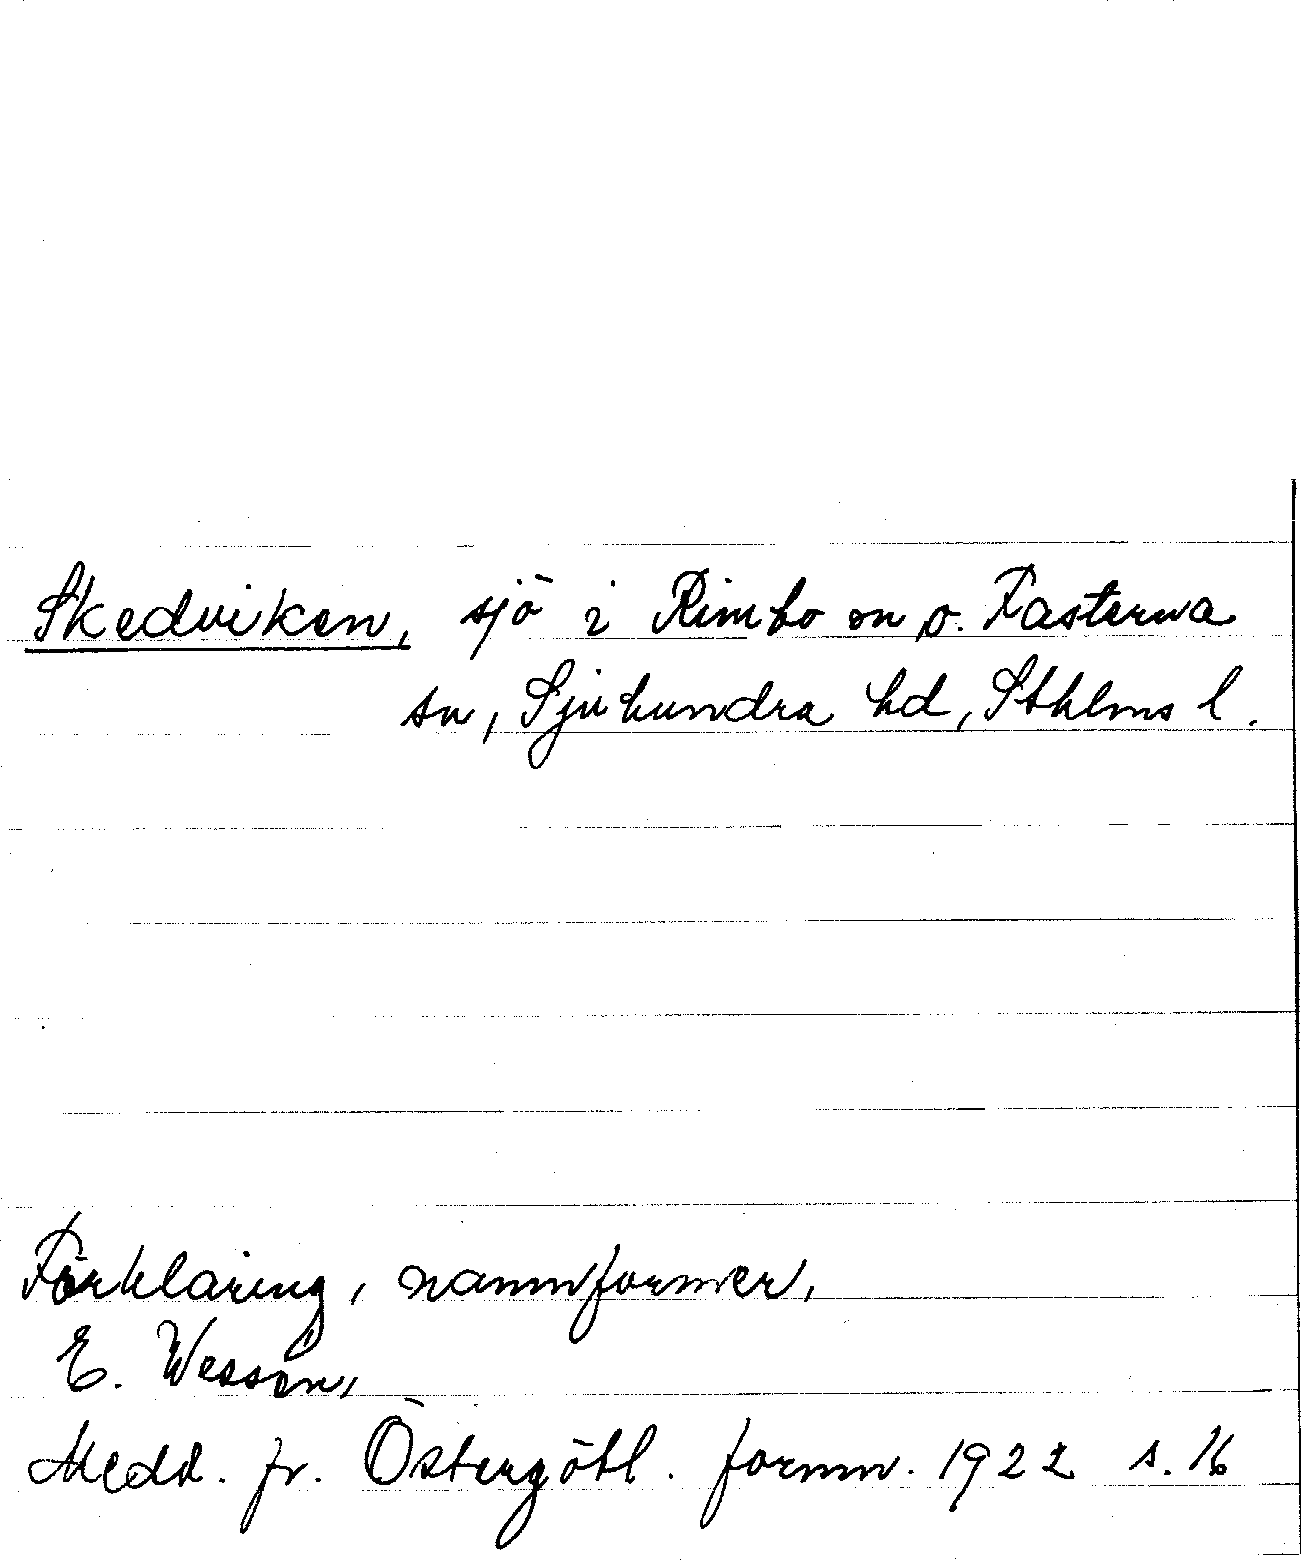 Skedviken, sjö i Rimbo sn o. Fasterna
sn, Sjuhundra hd, Sthlms l.
Förklaring, namnformer,
E. Wessén,
Medd. fr. Östergötl. fornm. 1922 s. 16